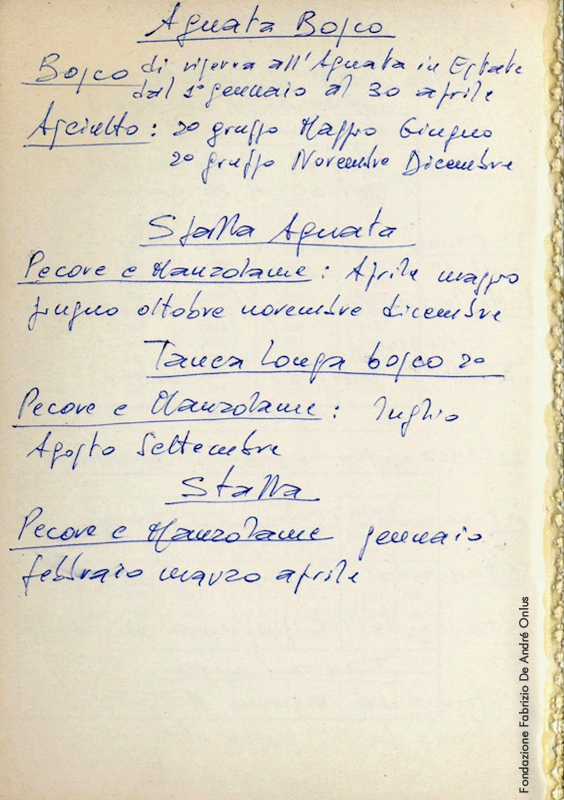 Agnata Bosco
Bosco di riserva all'Agnata in Estate
dal 1° gennaio al 30 aprile
Asciutto: 2° gruppo Maggio Giugno
2° gruppo Novembre Dicembre
Stalla Agnata
Pecore e Manzolame: Aprile maggio
giugno ottobre novembre dicembre
Tanca Longa bosco 2°
Pecore e Manzolame: luglio
Agosto Settembre
Stalla
Pecore e Manzolame gennaio
febbraio marzo aprile
Fondazione Fabrizio De André Onlus